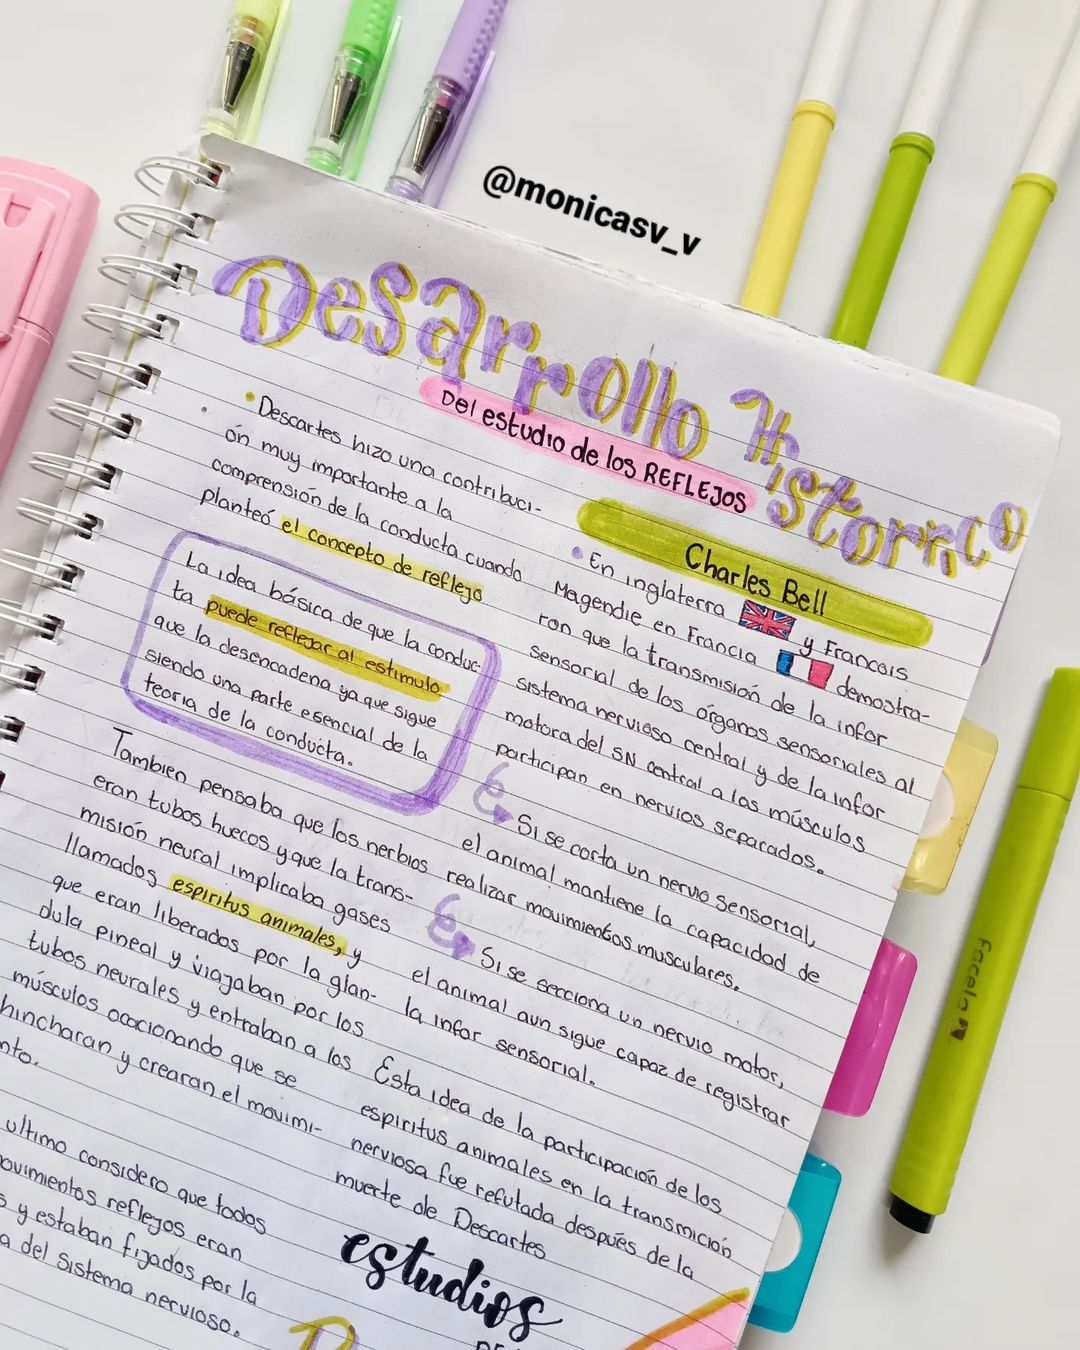 @monicasv_v
Desarrollo Historico
Del estudio de los REFLEJOS
• Descartes hizo una contribuci-
ón muy importante a la
comprensión de la conducta cuando
planteó el concepto de reflejo
La idea básica de que la conduc-
ta puede reflejar al estimulo
que la desencadena ya que sigue
siendo una parte esencial de la
teoria de la conducta.
Tambien pensaba que los nerbios
eran tubos huecos y que la trans-
misión neural implicaba gases
llamados espiritus animales, y
que eran liberados por la glan-
dula pineal y viajaban por los
tubos neurales y entraban a los
músculos ocacionando que se
hincharan y crearan el movimi-
nto.
ultimo considero que todos
ovimientos reflejos eran
s y estaban fijados por la
a del sistema nervioso.
Charles Bell
• En inglaterra y Francois
Magendie en Francia demostra-
ron que la transmisión de la infor
sensorial de los órganos sensoriales al
sistema nervioso central y de la infor
motora del SN central a los músculos
participan en nervios separados.
Si se corta un nervio sensorial,
el animal mantiene la capacidad de
realizar movimientos musculares.
Si se secciona un nervio motor,
el animal aun sigue capaz de registrar
la infor sensorial.
Esta idea de la participación de los
espiritus animales en la transmición
nerviosa fue refutada después de la
muerte de Descartes
estudios
facela